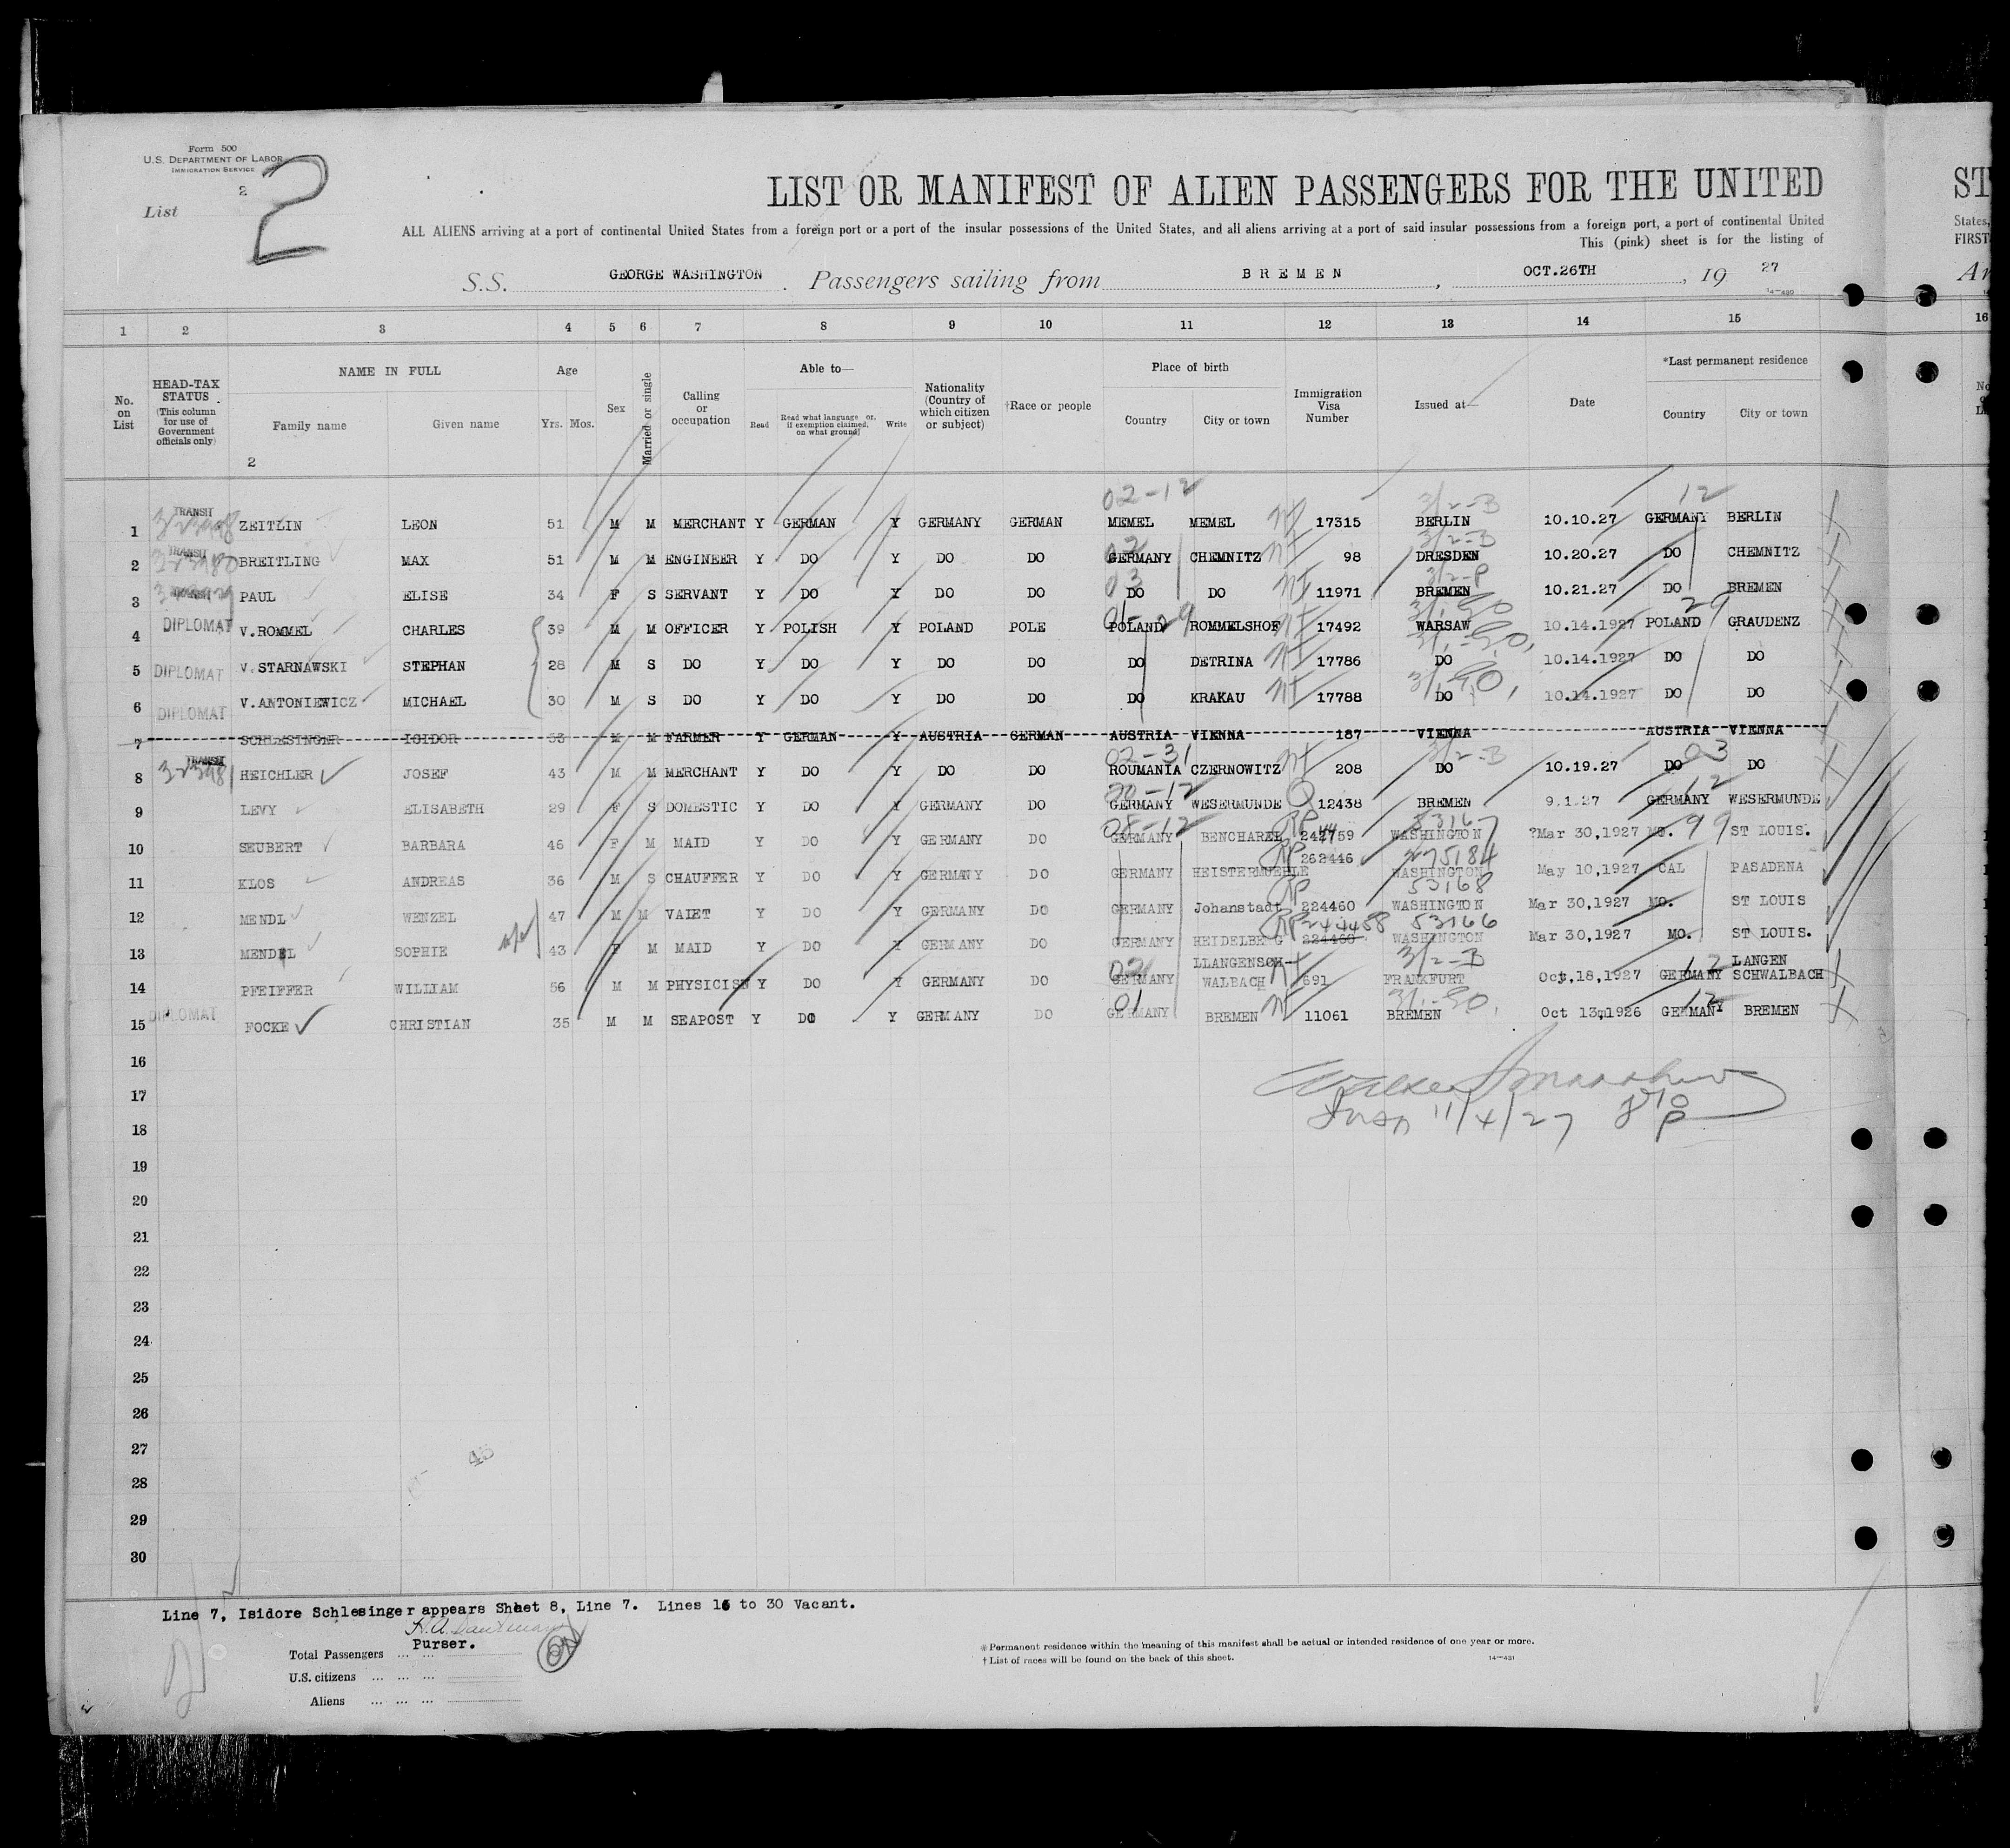 Form 500
U.S. DEPARTMENT OF LABOR
IMMIGRATION SERVICE
List 2
2
LIST OR MANIFEST OF ALIEN PASSENGERS FOR THE UNITED
ST
ALL ALIENS arriving at a port of continental United States from a foreign port or a port of the insular possessions of the United States, and all aliens arriving at a port of said insular possessions from a foreign port, a port of continental United
States,
This (pink) sheet is for the listing of
FIRST
S.S. GEORGE WASHINGTON. Passengers sailing from BREMEN, OCT.26TH, 19 27
14—430
1 2 3 4 5 6 7 8 9 10 11 12 13 14 15 16
No. on List
HEAD-TAX STATUS (This column for use of Government officials only)
NAME IN FULL
Family name Given name
2
Age
Yrs. Mos.
Sex
Married or single
Calling or occupation
Able to—
Read
Read what language or, if exemption claimed, on what ground
Write
Nationality (Country of which citizen or subject)
†Race or people
Place of birth
Country City or town
Immigration Visa Number
Issued at—
Date
*Last permanent residence
Country City or town
02-12 12
1 TRANSIT ZEITLIN LEON 51 M M MERCHANT Y GERMAN Y GERMANY GERMAN MEMEL MEMEL 17315 BERLIN 10.10.27 GERMANY BERLIN
2 TRANSIT BREITLING MAX 51 M M ENGINEER Y DO Y DO DO GERMANY CHEMNITZ 98 DRESDEN 10.20.27 DO CHEMNITZ
3 PAUL ELISE 34 F S SERVANT Y DO Y DO DO DO DO 11971 BREMEN 10.21.27 DO BREMEN
4 DIPLOMAT V.ROMMEL CHARLES 39 M M OFFICER Y POLISH Y POLAND POLE POLAND ROMMELSHOF 17492 WARSAW 10.14.1927 POLAND GRAUDENZ
5 DIPLOMAT V.STARNAWSKI STEPHAN 28 M S DO Y DO Y DO DO DO DETRINA 17786 DO 10.14.1927 DO DO
6 DIPLOMAT V.ANTONIEWICZ MICHAEL 30 M S DO Y DO Y DO DO DO KRAKAU 17788 DO 10.14.1927 DO DO
7 SCHLESINGER ISIDOR 53 M M FARMER Y GERMAN Y AUSTRIA GERMAN AUSTRIA VIENNA 187 VIENNA AUSTRIA VIENNA
02-31 03
8 TRANSIT HEICHLER JOSEF 43 M M MERCHANT Y DO Y DO DO ROUMANIA CZERNOWITZ 208 DO 10.19.27 DO DO
9 LEVY ELISABETH 29 F S DOMESTIC Y DO Y GERMANY DO GERMANY WESERMUNDE 12438 BREMEN 9.1.27 GERMANY WESERMUNDE
08-12 RP 53167 99
10 SEUBERT BARBARA 46 F M MAID Y DO Y GERMANY DO GERMANY 242759 WASHINGTON ?Mar 30,1927 MO. ST LOUIS.
RP 275184
11 KLOS ANDREAS 36 M S CHAUFFER Y DO Y GERMANY DO GERMANY HEISTERMUEHLE 262446 WASHINGTON May 10,1927 CAL PASADENA
RP 53168
12 MENDL WENZEL 47 M M VALET Y DO Y GERMANY DO GERMANY Johanstadt 224460 WASHINGTON Mar 30,1927 MO. ST LOUIS
RP 244458 53166
13 MENDEL SOPHIE 43 F M MAID Y DO Y GERMANY DO GERMANY HEIDELBE G 224460 WASHINGTON Mar 30,1927 MO. ST LOUIS.
14 PFEIFFER WILLIAM 56 M M PHYSICISN Y DO Y GERMANY DO GERMANY LLANGENSCH-WALBACH 691 FRANKFURT Oct,18,1927 GERMANY LANGEN SCHWALBACH
15 DIPLOMAT FOCKE CHRISTIAN 35 M M SEAPOST Y DO Y GERMANY DO GERMANY BREMEN 11061 BREMEN Oct 13,1926 GERMANY BREMEN
16
17
11/4/27
18
19
20
21
22
23
24
25
26
27
28
29
30
Line 7, Isidore Schlesinger appears Sheet 8, Line 7. Lines 16 to 30 Vacant.
Purser.
Total Passengers
U.S. citizens
Aliens
*Permanent residence within the meaning of this manifest shall be actual or intended residence of one year or more.
†List of races will be found on the back of this sheet.
14—431